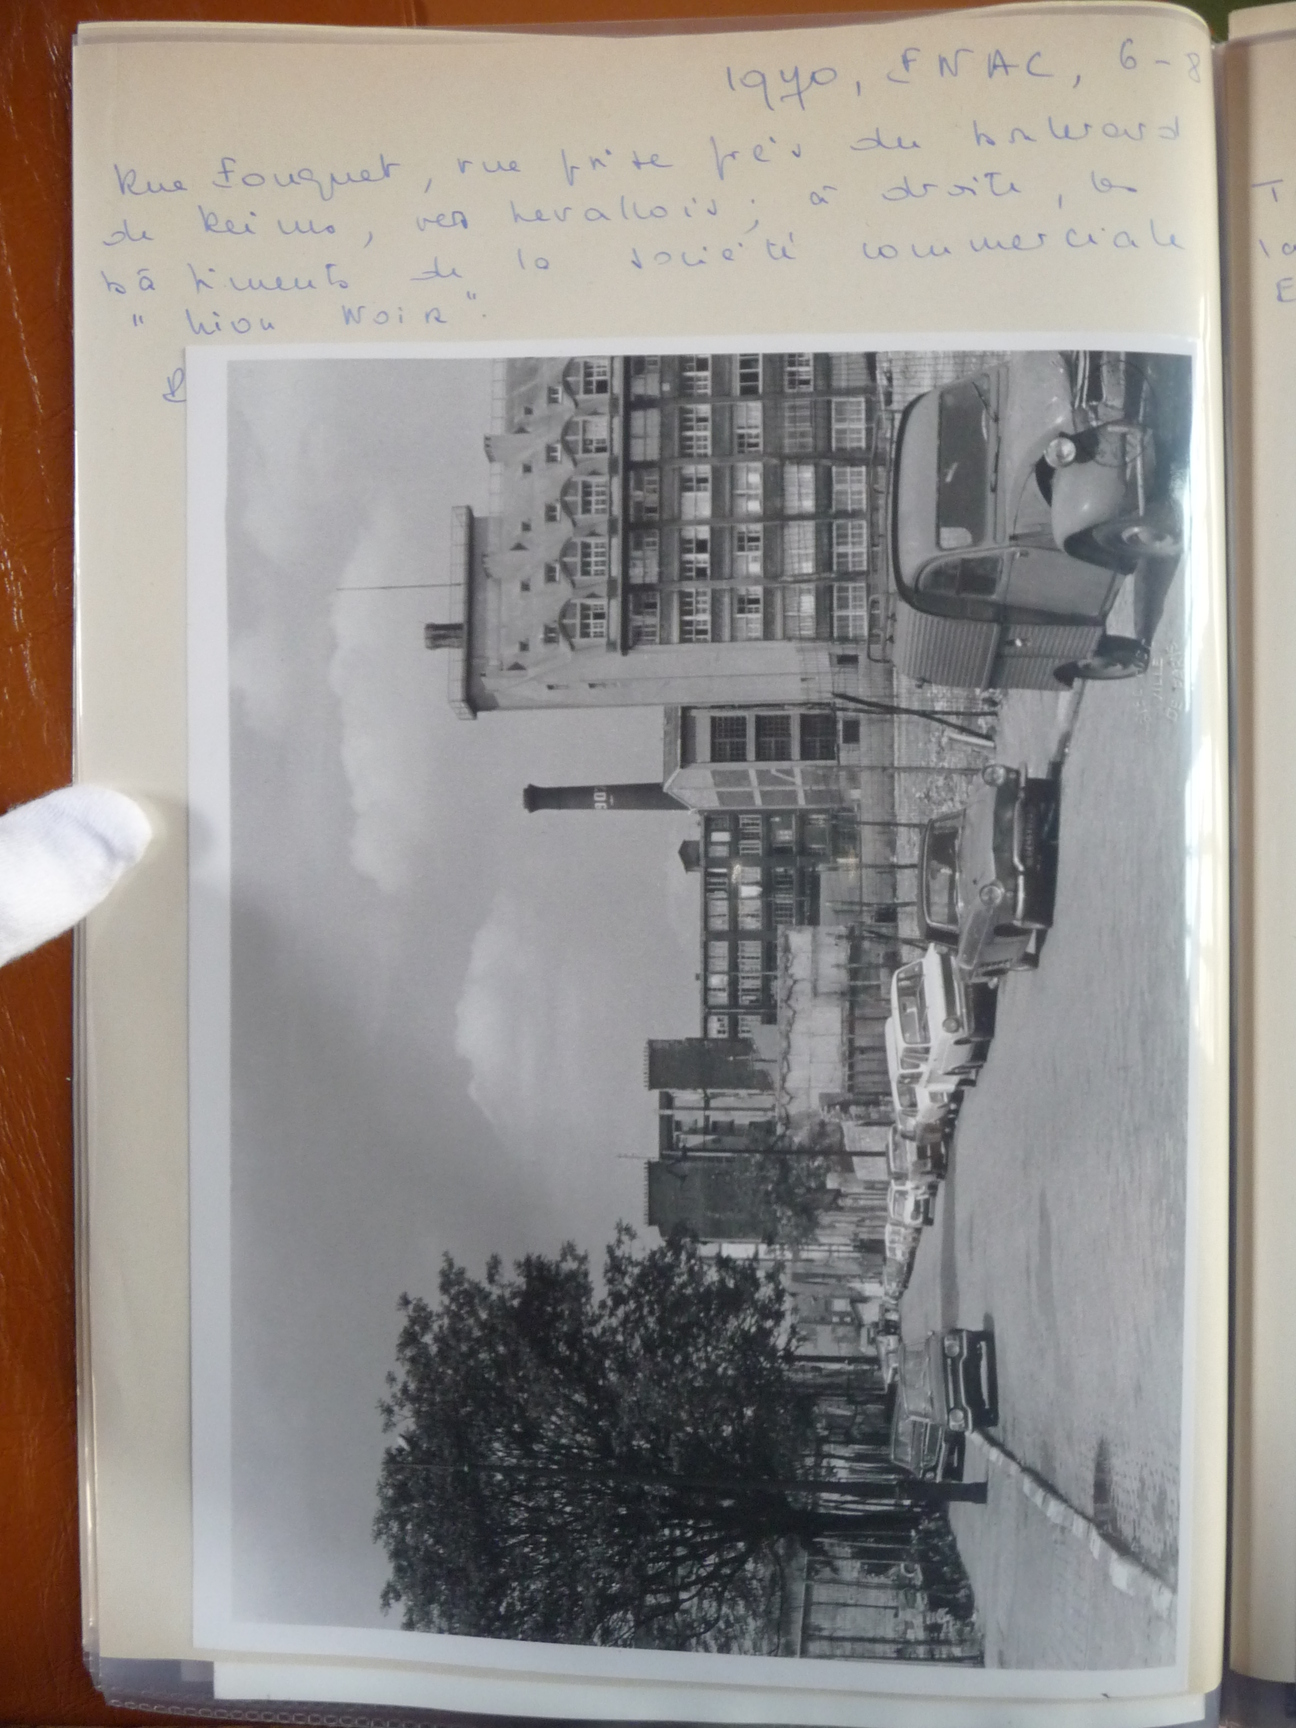 1970, FNAC, 6-8
Rue Fouquet, rue prise près du boulevard
de Reims, vers Levallois ; à droite, les
bâtiments de la société commerciale
"Lion Noir".
VILLE
DE PARIS